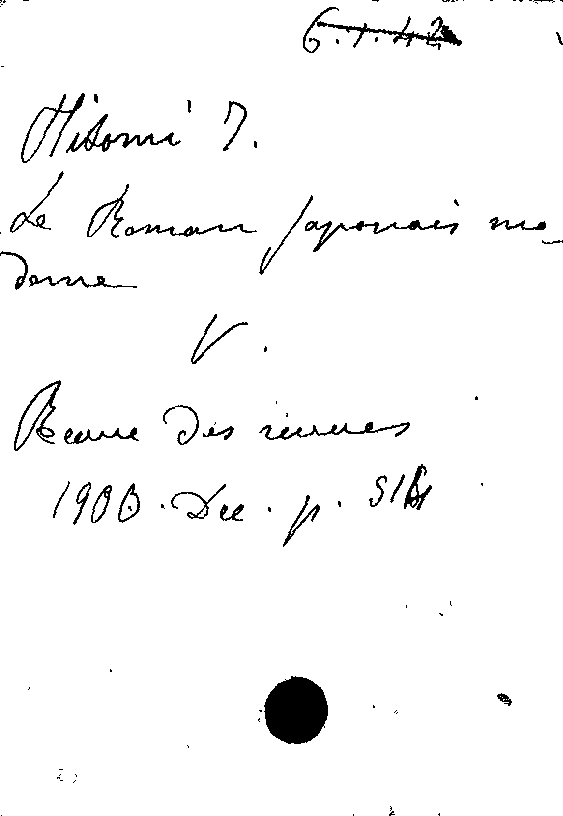 6.1.42
Hitomi J.
Le Roman japonais mo-
derne
V.
Revue des revues
1900. Dec. p.